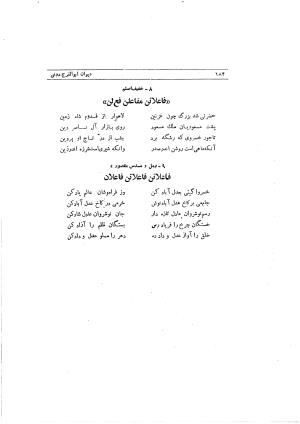 ۱۸۴ دیوان ابوالفرج رونی
۸ - خفیف اصلم
«فاعلاتن مفاعلن فع‌لن»
حضرتی شد بزرگ چون غزنین لاهوار از قدوم شاه زمین
پشت مسعودیان ملک مسعود روی بازار آل ناصر دین
تاجور خسروی که رشکه برد شب از در تاج او پروین
آنکه ماهی است روشن اندر صدر وانکه شیری است شرزه اندر زین
۹ - رمل « مسدس مقصور »
فاعلاتن فاعلاتن فاعلان
خسروا گیتی بعدل آباد کن وز فراموشان عالم یاد کن
جامی بر کاخ عدل آبادنوش خرمی در کاخ عدل آباد کن
رسم نوشروان عادل تازه دار جان نوشروان عادل شاد کن
خستگان چرخ را فریاد رس بستگان ظلم را آزاد کن
خلق را آب از عدل و داد ده دهر را مملو عدل و داد کن